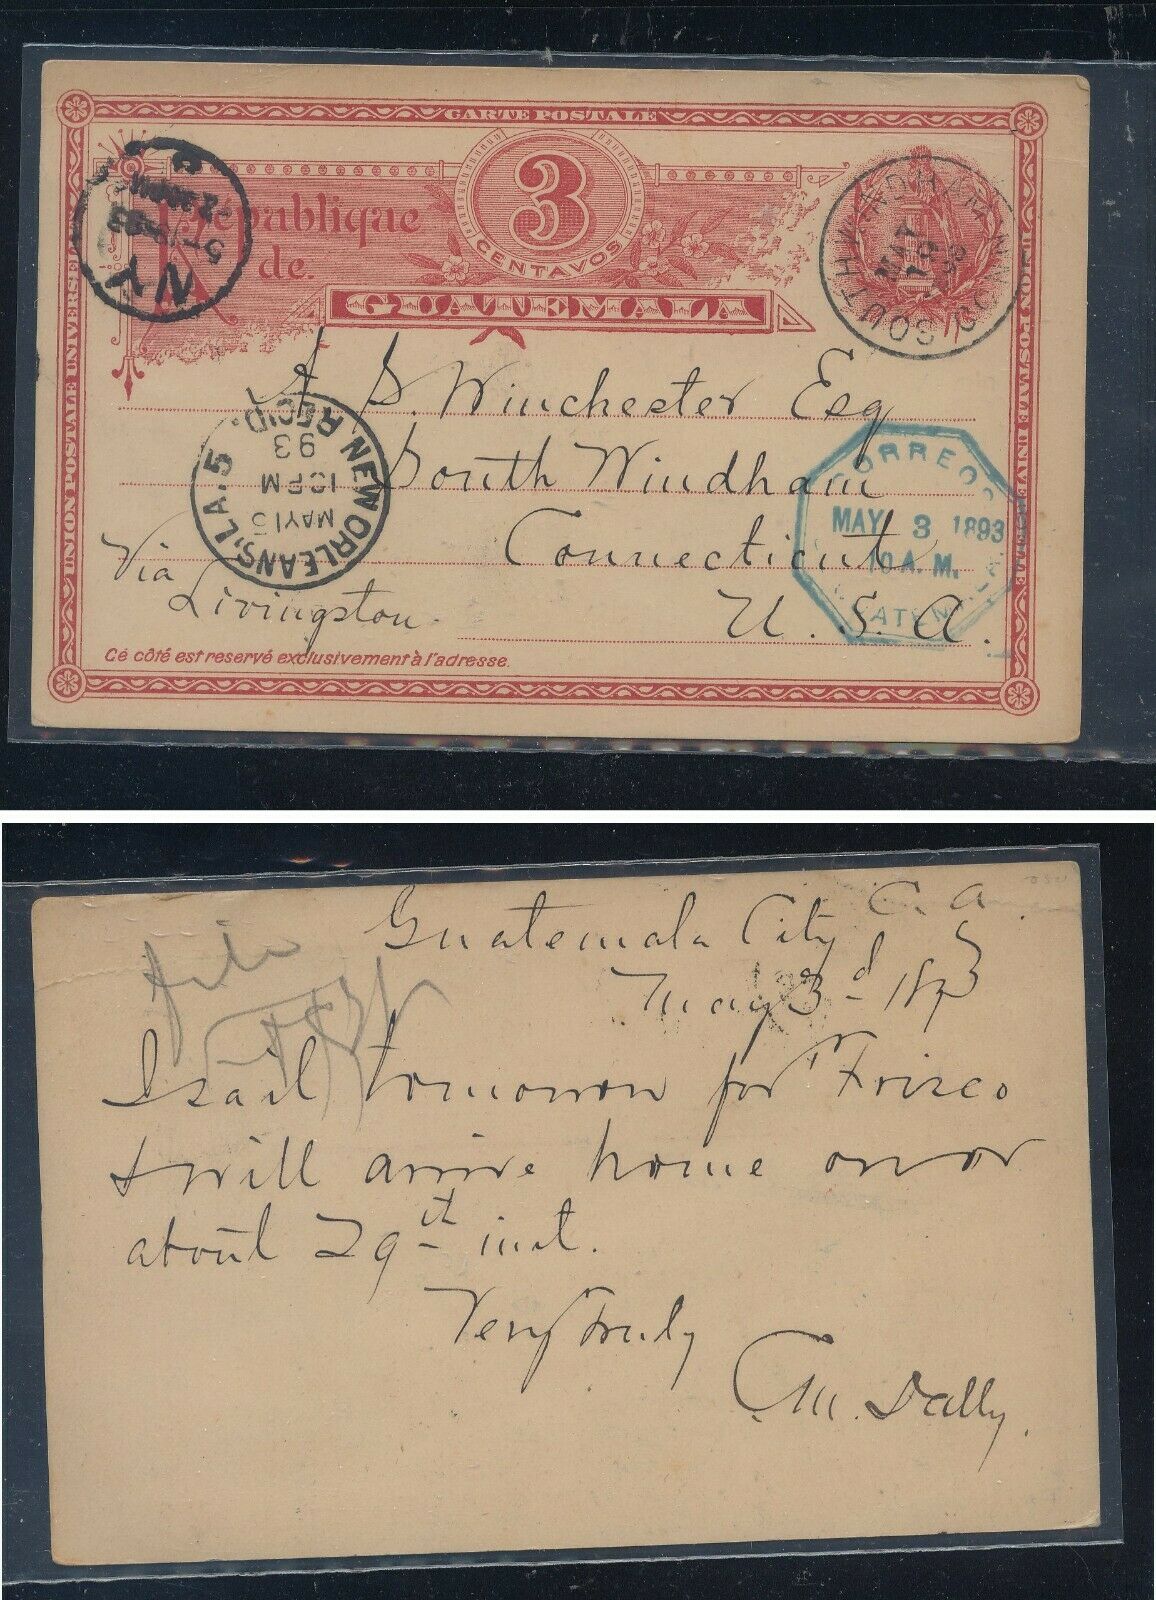 CARTE POSTALE
UNION POSTALE UNIVERSELLE
UNION POSTALE UNIVERSELLE
3
CENTAVOS
République
de
GUATEMALA
NY
5-18-93
SOUTH WINDHAM CONN.
MAY
19
93
A. S. Winchester Esq
South Windham
Connecticut
U. S. A.
NEW ORLEANS, LA. 5 REC'D.
MAY 15
12 PM
93
CORREOS
MAY 3 1893
10 A. M.
Via
Livingston
Cé côté est reservé exclusivement à l'adresse.
Guatemala City C. A.
May 3d 1893
file
I sail tomorrow for Frisco
& will arrive home on or
about 29th inst.
Very truly
C. M. Dally.